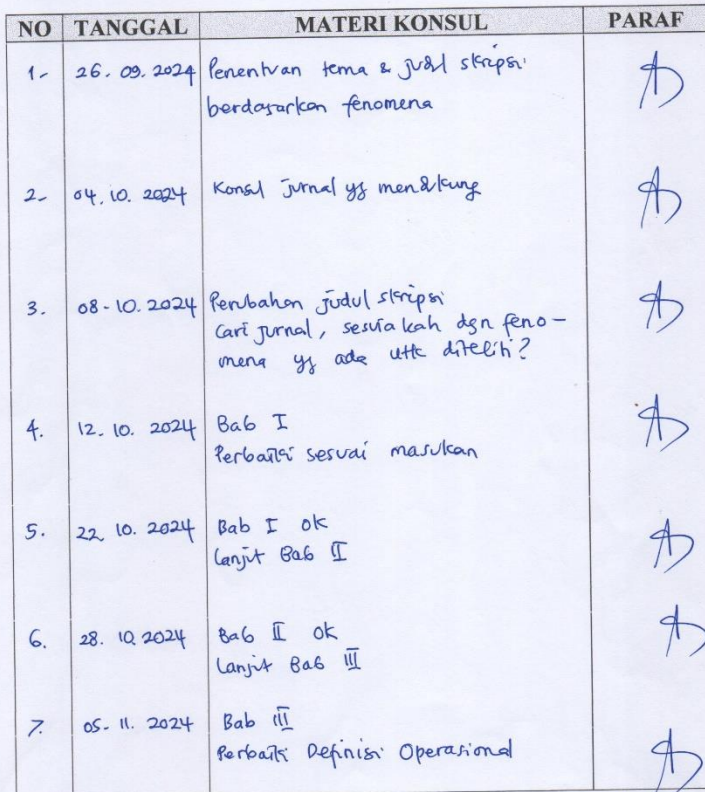 NO TANGGAL MATERI KONSUL PARAF
1- 26. 09. 2024 Penentuan tema & judul skripsi
berdasarkan fenomena
2- 04. 10. 2024 Konsul jurnal yg mendukung
3. 08-10. 2024 Perubahan judul skripsi
Cari jurnal, sesuia kah dgn feno-
mena yg ada utk diteliti?
4. 12. 10. 2024 Bab I
Perbaiki sesuai masukan
5. 22. 10. 2024 Bab I ok
Lanjut Bab II
6. 28. 10. 2024 Bab II ok
Lanjut Bab III
7. 05-11. 2024 Bab III
Perbaiki Definisi Operasional